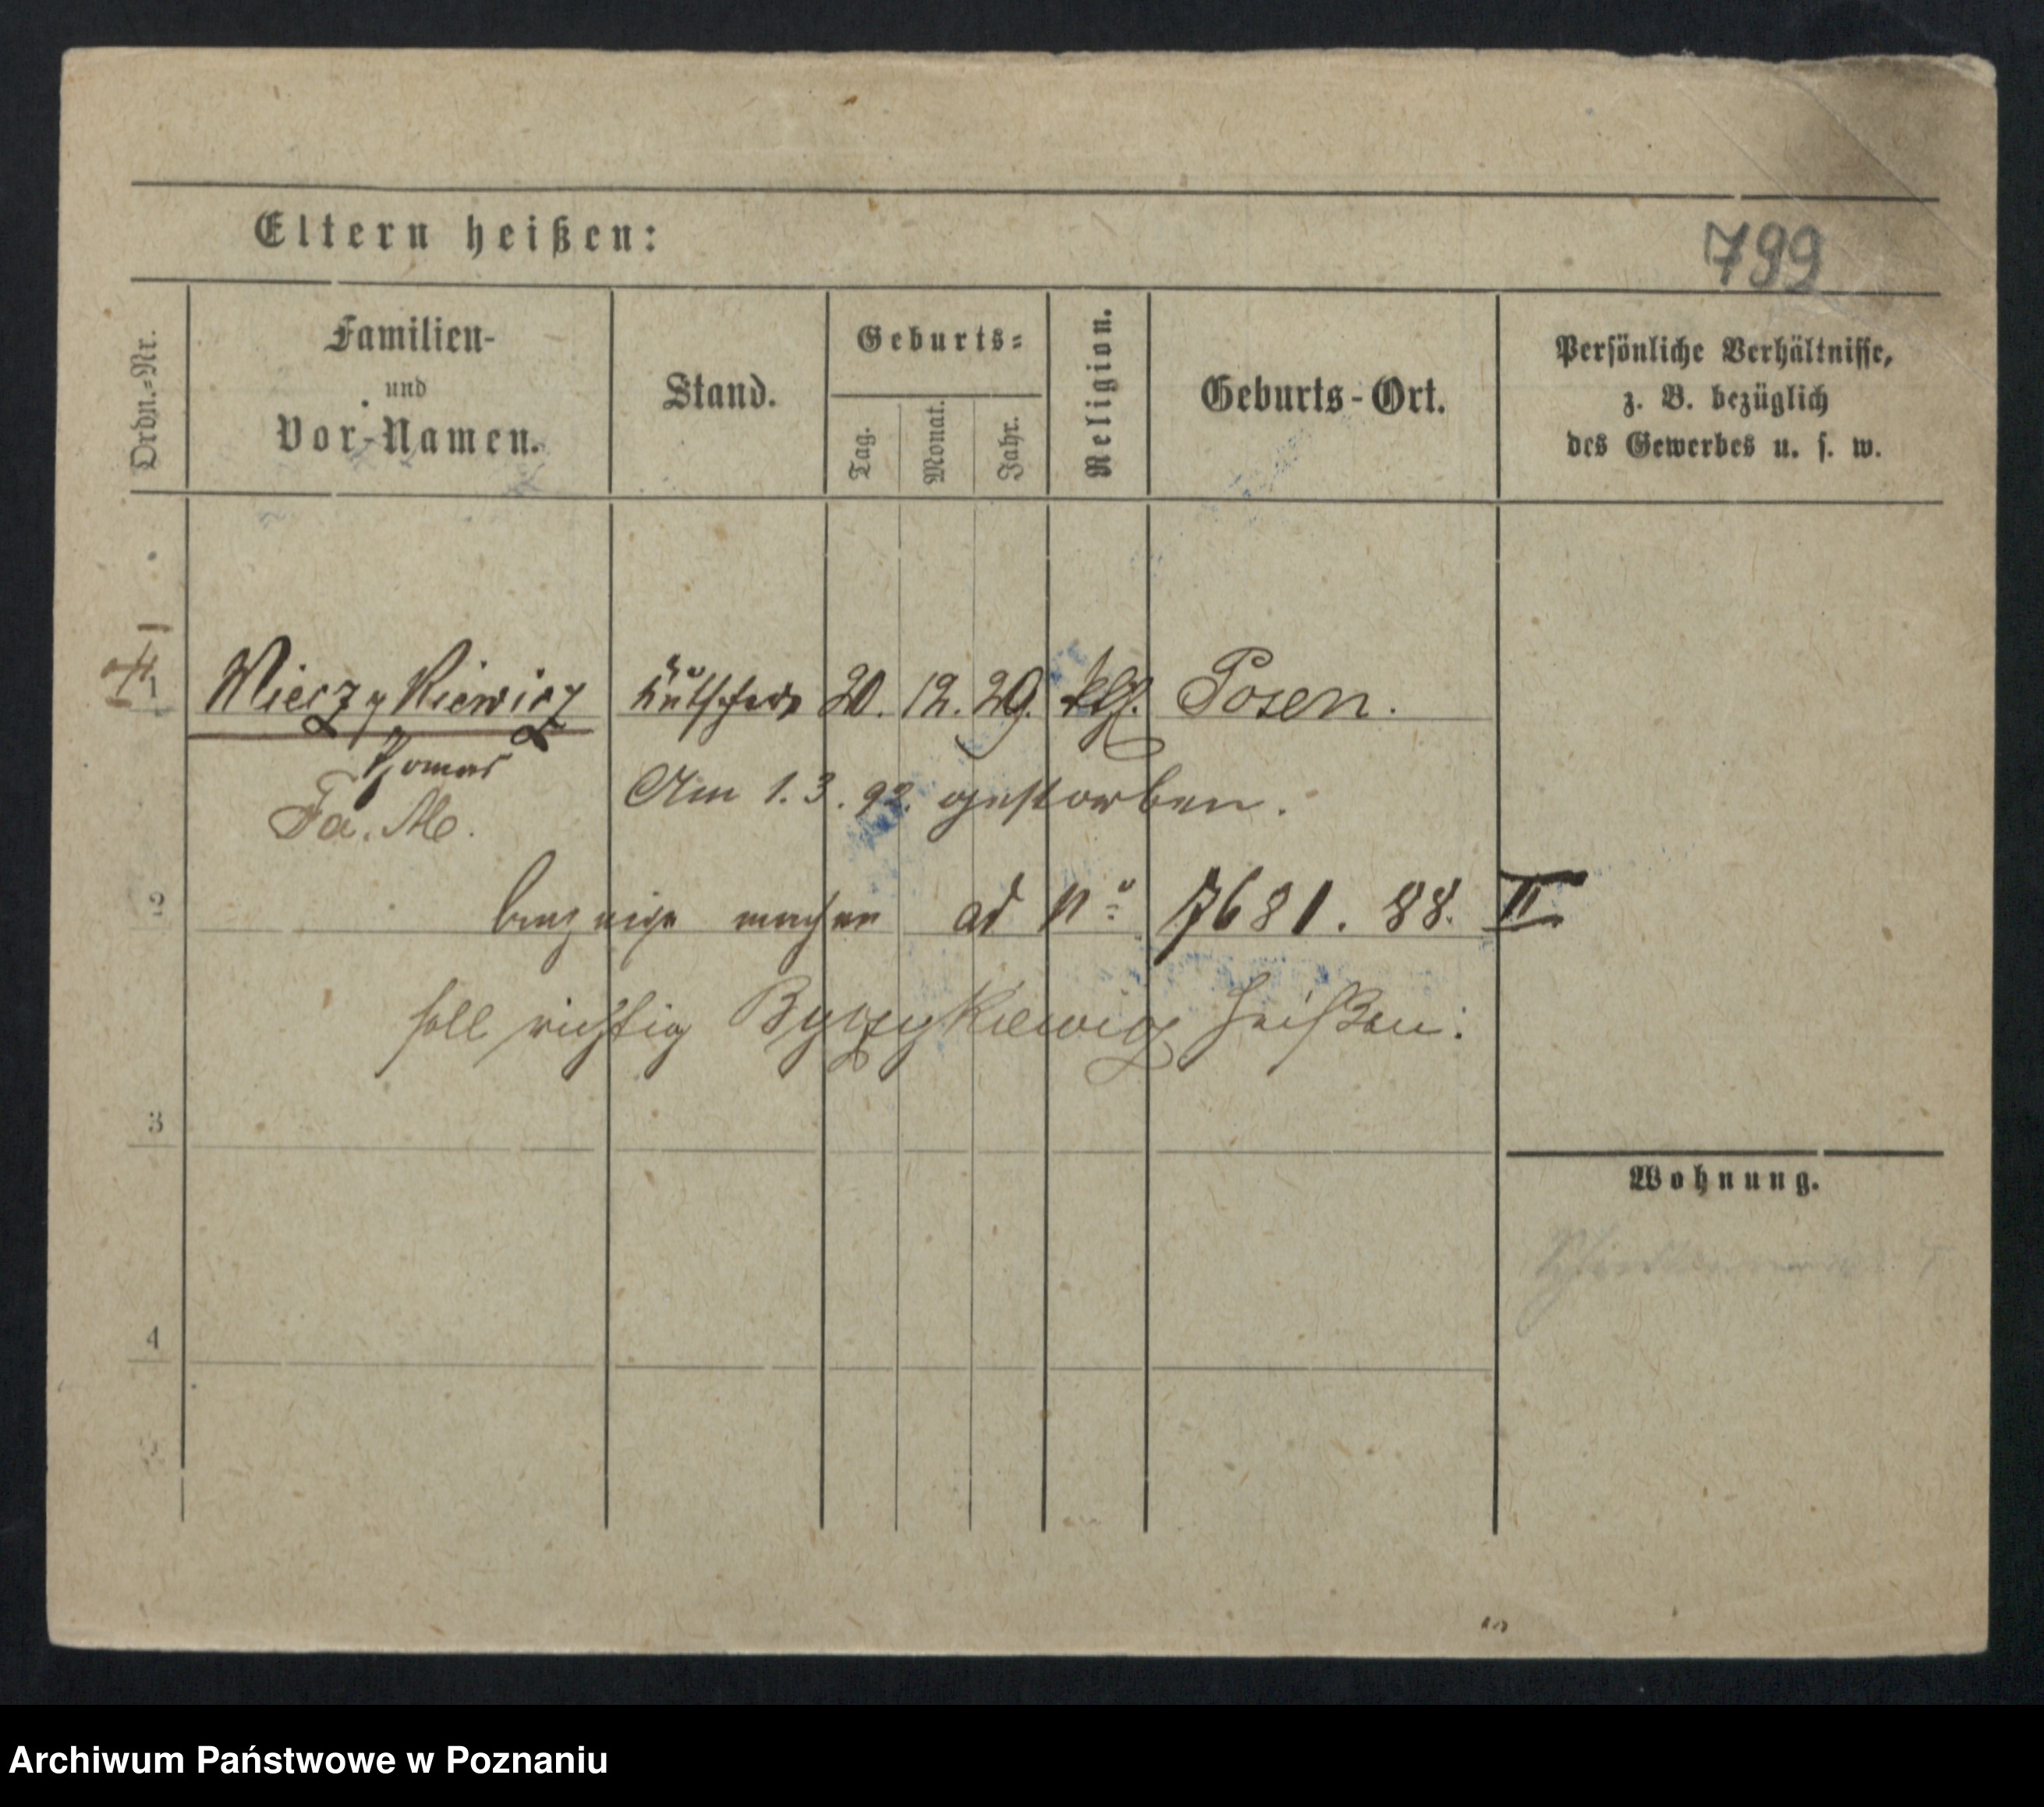 799
Eltern heißen:
Ordn.-Nr.
Familien-
und
Vor-Namen.
Stand.
Geburts-
Tag.
Monat.
Jahr.
Religion.
Geburts-Ort.
Persönliche Verhältnisse,
z. B. bezüglich
des Gewerbes u. s. w.
1 Wieczykiewicz Kutscher 20. 12. 29. kth. Posen.
Thomas
Fa. M.
Am 1. 3. 92. gestorben.
2 machen ad No 7681. 88. II
soll richtig Byczykiewicz heißen:
3
Wohnung.
4
5
Archiwum Państwowe w Poznaniu